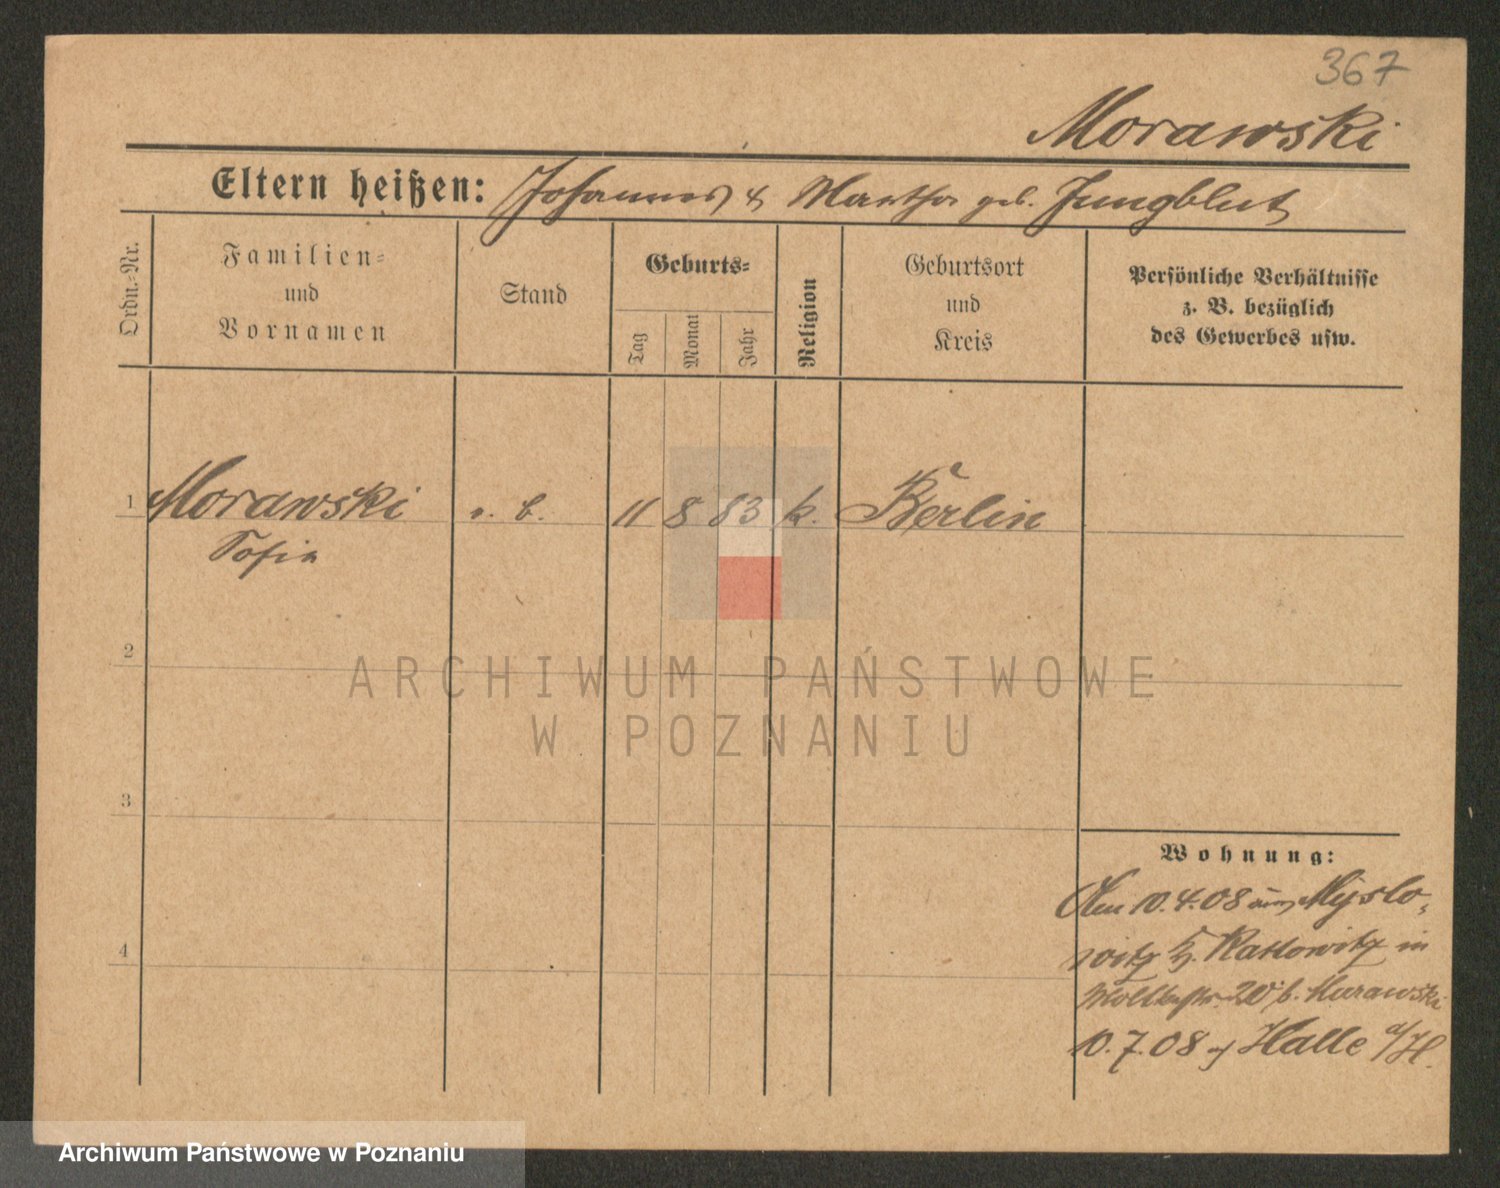 367
Morawski
Eltern heißen: Johannes & Martha geb. Jungblut
Ordn.-Nr.
Familien-
und
Vornamen
Stand
Geburts-
Tag
Monat
Jahr
Religion
Geburtsort
und
Kreis
Persönliche Verhältnisse
z. B. bezüglich
des Gewerbes usw.
1 Morawski o. b. 11 8 83 k. Berlin
Sofia
2
ARCHIWUM PAŃSTWOWE
W POZNANIU
3
Wohnung:
Am 10.4.08 aus Myslo-
witz Kr. Kattowitz in
Moltkestr. 20 b. Murawski
4
10.7.08 Halle a/H.
Archiwum Państwowe w Poznaniu